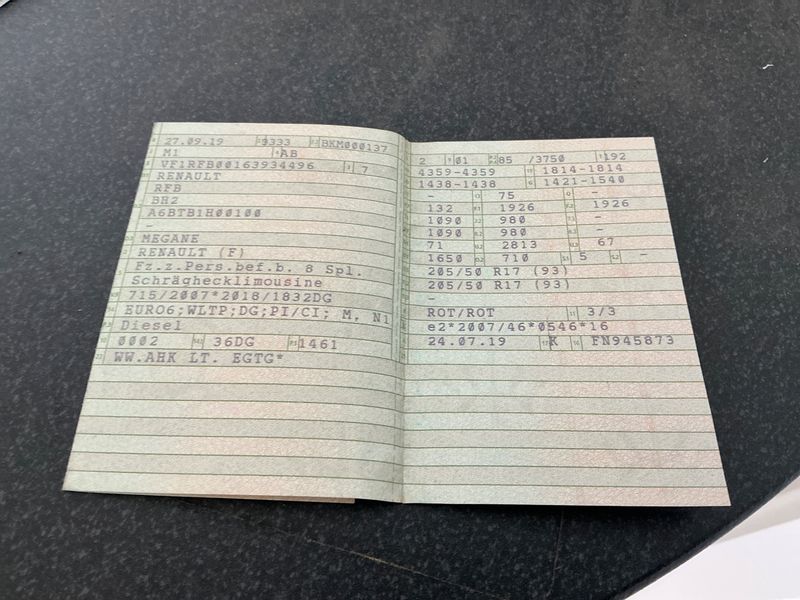 27.09.19 3333 BKM000137
M1 AB
VF1RFB00163934496 7
RENAULT
RFB
BH2
A6BTB1H00100
-
MEGANE
RENAULT (F)
Fz.z.Pers.bef.b. 8 Spl.
Schräghecklimousine
715/2007*2018/1832DG
EURO6;WLTP;DG;PI/CI; M, N1
Diesel
0002 36DG 1461
WW.AHK LT. EGTG*
2 01 85 /3750 192
4359-4359 1814-1814
1438-1438 1421-1540
- 75 -
132 1926 1926
1090 980 -
1090 980 -
71 2813 67
1650 710 5 -
205/50 R17 (93)
205/50 R17 (93)
-
ROT/ROT 3/3
e2*2007/46*0546*16
24.07.19 K FN945873